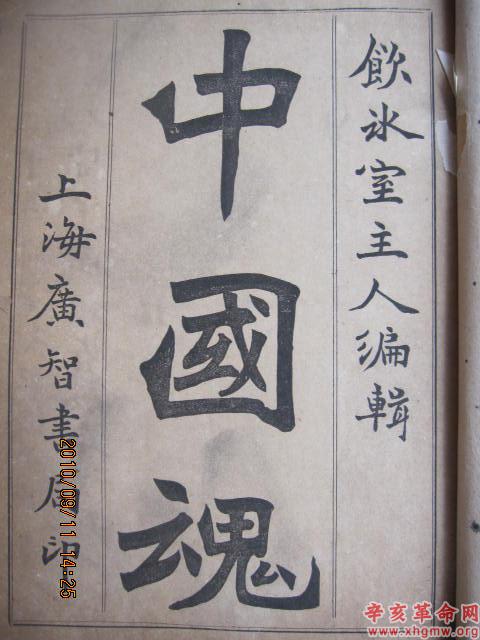 飲冰室主人編輯
中國魂
上海廣智書局印
2010/09/11 14:25
辛亥革命网
www.xhgmw.org